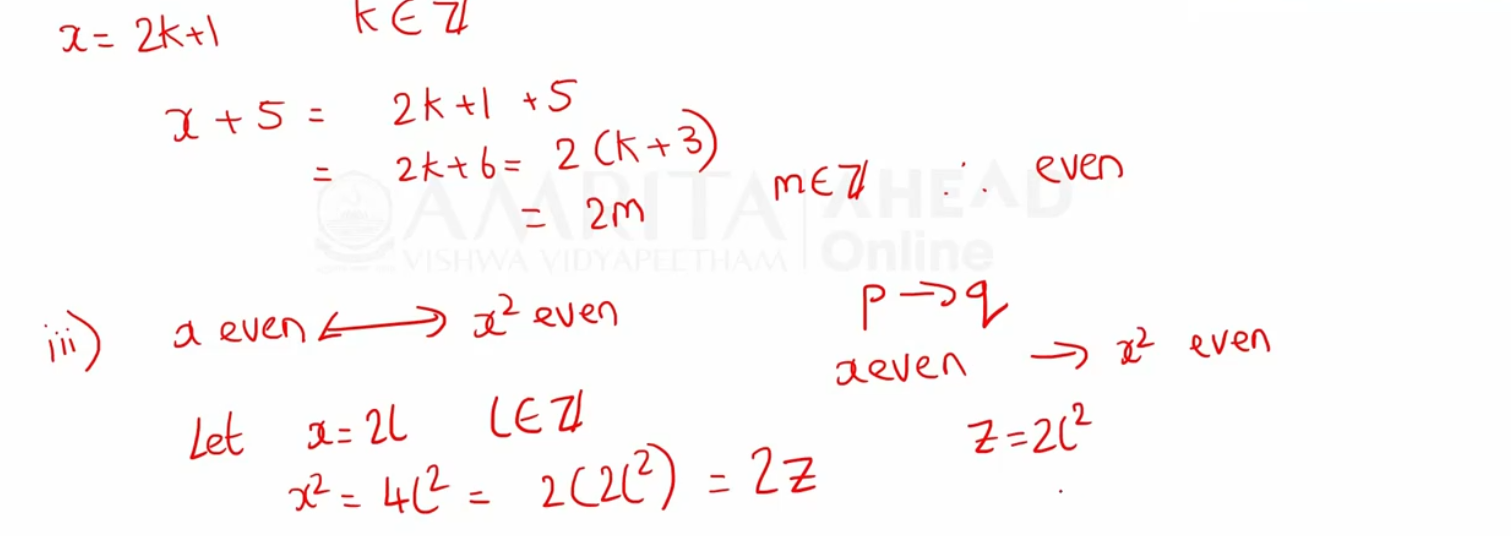 x = 2k+1 k ∈ ℤ
x + 5 = 2k+1 +5
= 2k+6 = 2(k+3)
= 2m m∈ℤ ∴ even
AMRITA AHEAD
VISHWA VIDYAPEETHAM Online
iii) x even ⟷ x² even p→q
x even → x² even
Let x=2l l∈ℤ z=2l²
x² = 4l² = 2(2l²) = 2z